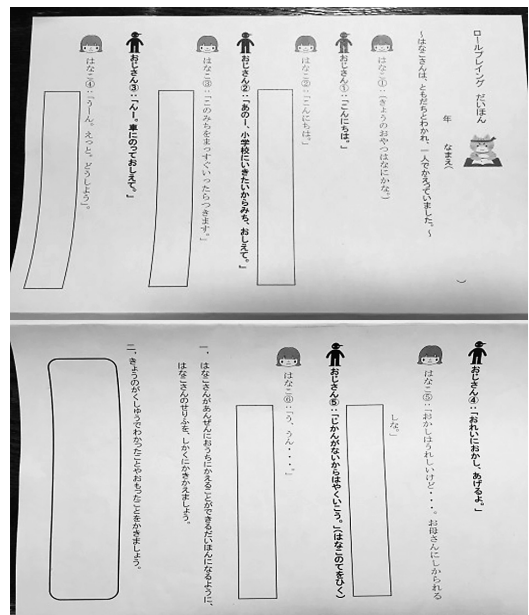 ロールプレイング だいほん
年 なまえ( )
～はなこさんは、ともだちとわかれ、一人でかえっていました。～
はなこ①:(きょうのおやつはなにかな。)
おじさん①:「こんにちは。」
はなこ②:「こんにちは。」
おじさん②:「あのー、小学校にいきたいからみち、おしえて。」
はなこ③:「このみちをまっすぐいったらつきます。」
おじさん③:「んー。車にのっておしえて。」
はなこ④:「うーん。えっと。どうしよう」。
おじさん④:「おれいにおかし、あげるよ。」
はなこ⑤:「おかしはうれしいけど・・・。お母さんにしかられる
しな。」
おじさん⑤:「じかんがないからはやくいこう。」(はなこのてをひく)
はなこ⑥:「う、うん・・・。」
一、はなこさんがあんぜんにおうちにかえることができるだいほんになるように、
はなこさんのせりふを、しかくにかきかえましょう。
二、きょうのがくしゅうでわかったことやおもったことをかきましょう。